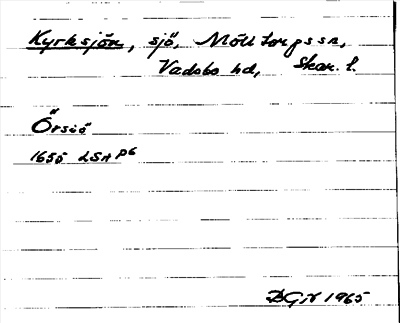 Kyrksjön, sjö, Mölltorps sn,
Vadsbo hd, Skar. l.
Örsiö
1655 LSA P6
1965